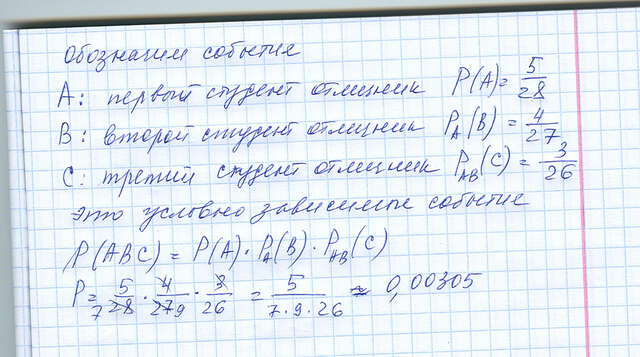 Обозначим событие
A: первый студент отличник P(A) = 5/28
B: второй студент отличник P_A(B) = 4/27
C: третий студент отличник P_AB(C) = 3/26
это условно зависимые событие
P(ABC) = P(A) · P_A(B) · P_AB(C)
P = 5/28 7 · 4/27 9 · 3/26 = 5/7·9·26 ≈ 0,00305